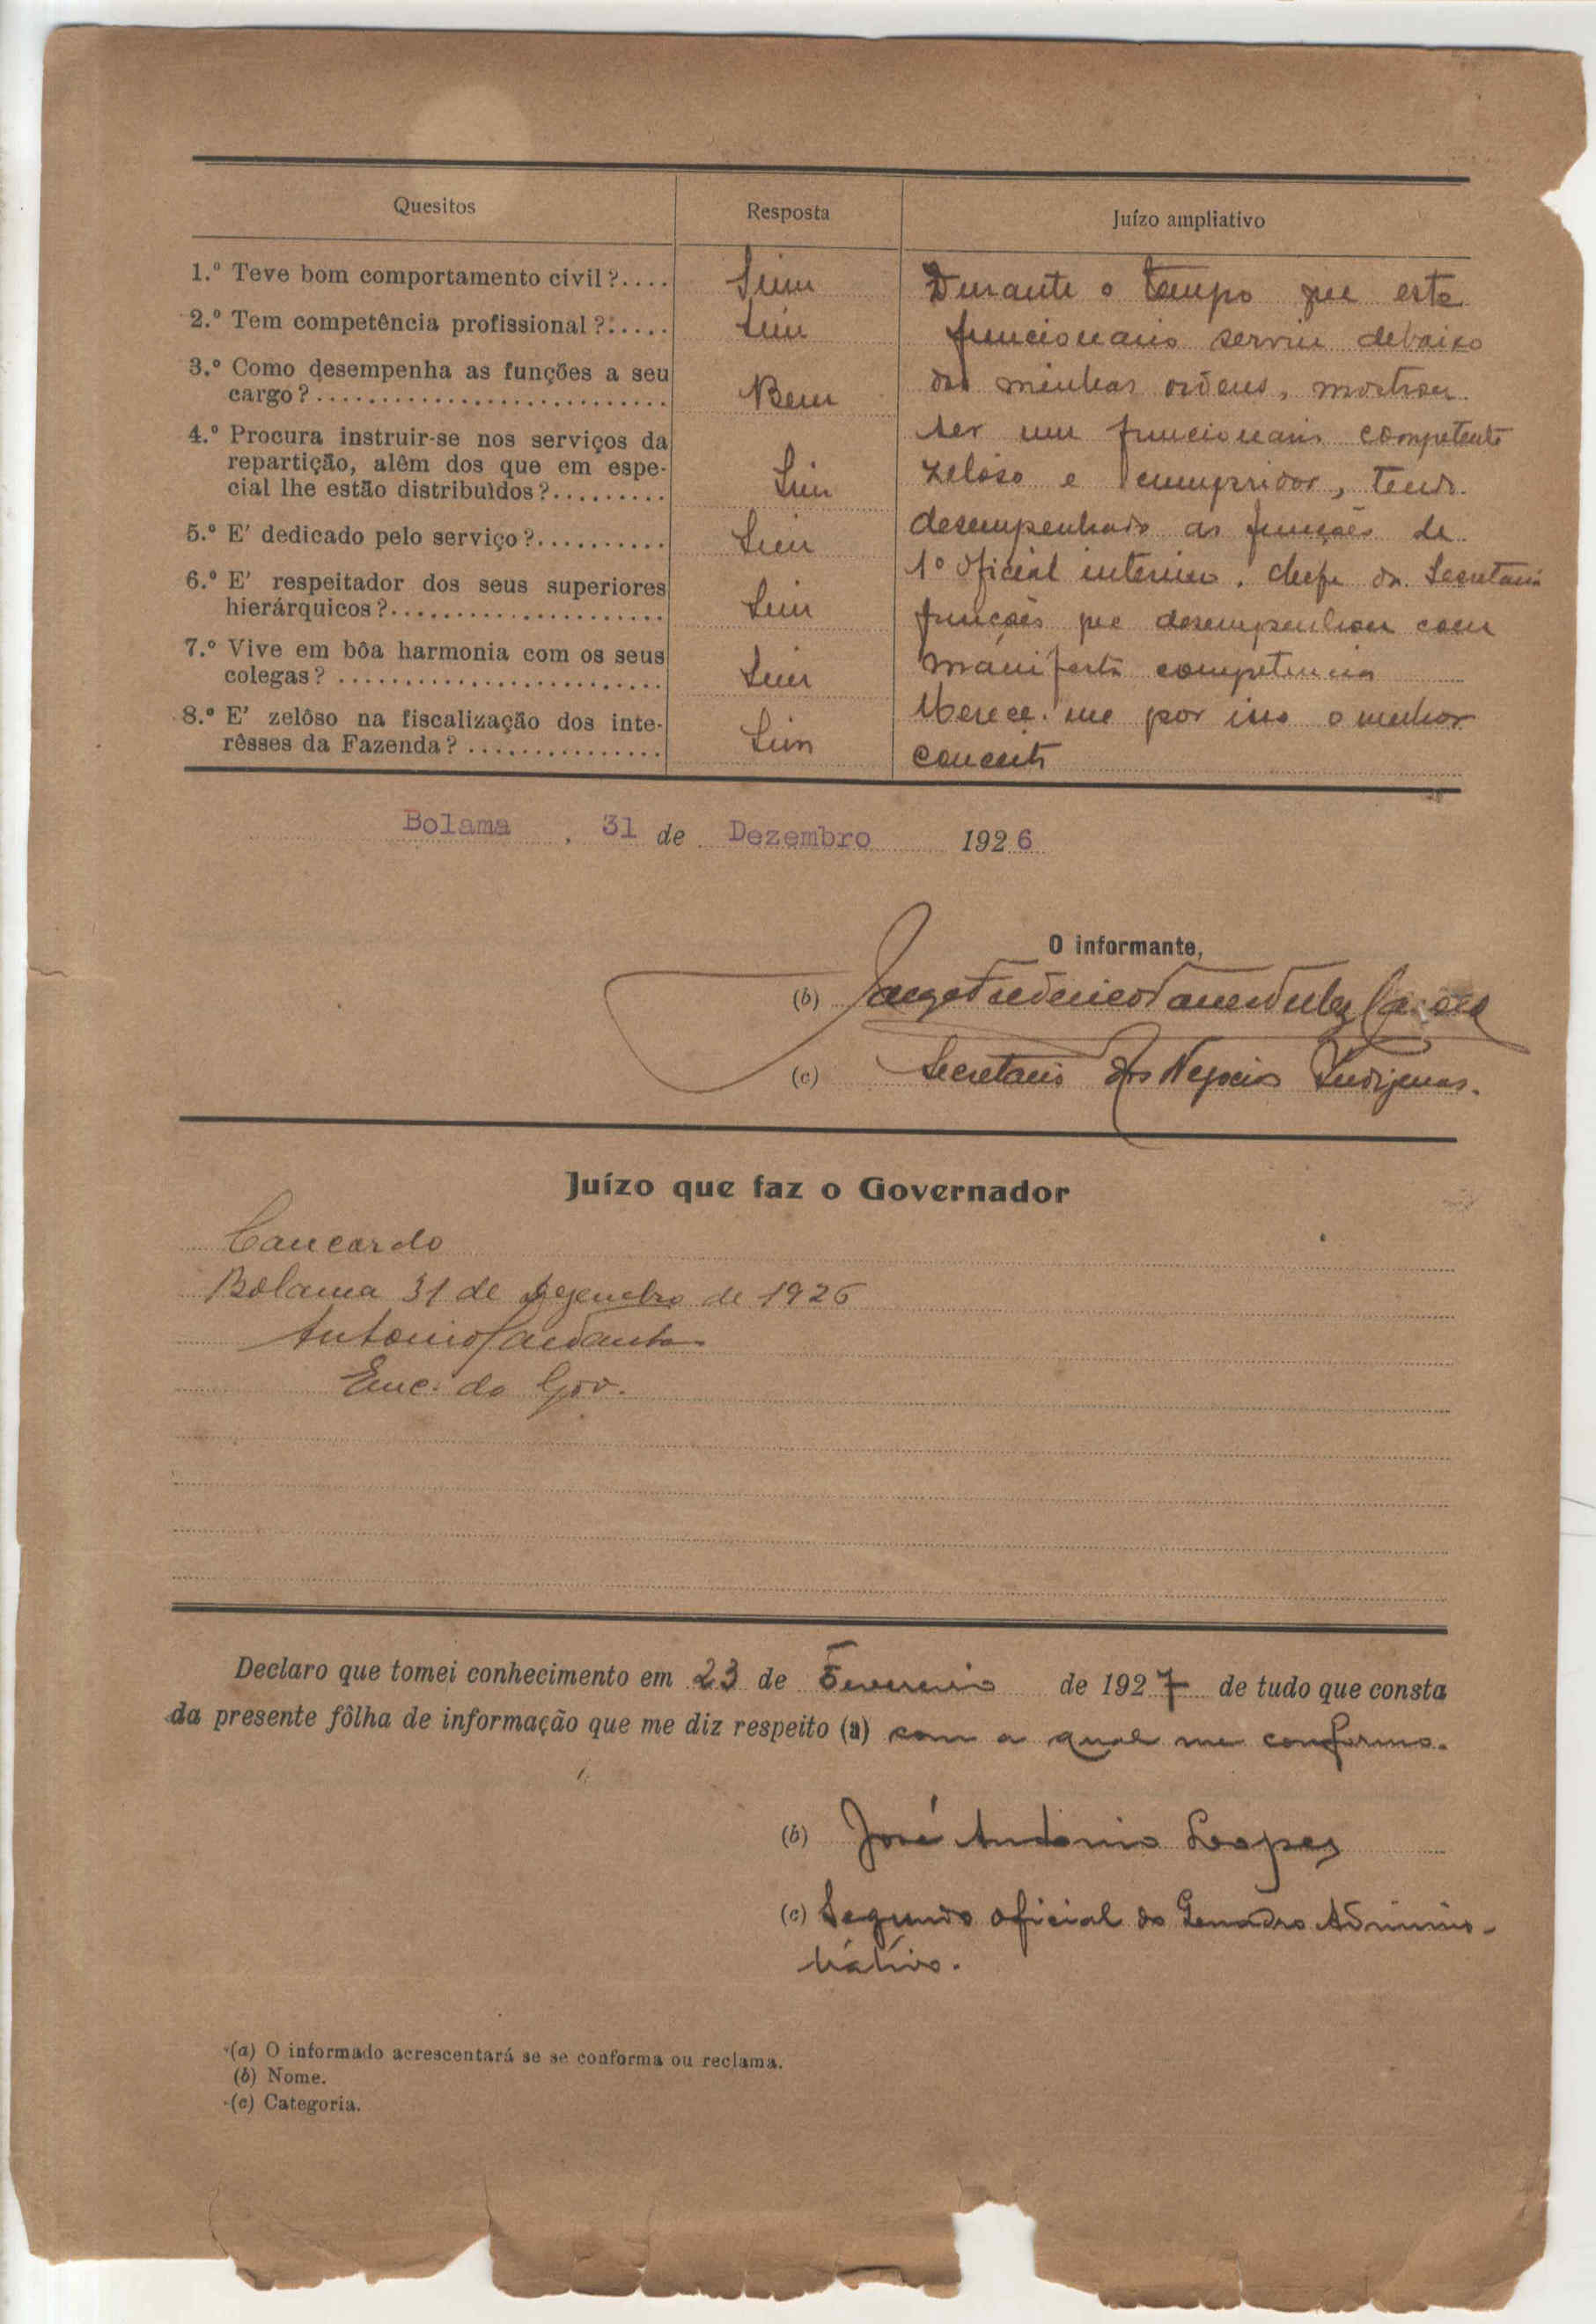 Quesitos Resposta Juízo ampliativo
1.º Teve bom comportamento civil?.... Sim
2.º Tem competência profissional?..... Sim
3.º Como desempenha as funções a seu
cargo?........................... Bem
4.º Procura instruir-se nos serviços da
repartição, alêm dos que em espe-
cial lhe estão distribuìdos?......... Sim
5.º E' dedicado pelo serviço?.......... Sim
6.º E' respeitador dos seus superiores
hierárquicos?..................... Sim
7.º Vive em bôa harmonia com os seus
colegas? ......................... Sim
8.º E' zelôso na fiscalização dos inte-
rêsses da Fazenda? ............... Sim
Durante o tempo que este
funcionario serviu debaixo
das minhas ordens, mostrou
ser um funcionario competente
zeloso e cumpridor, tendo
desempenhado as funções de
1º oficial interino, chefe da Secretaria
funções que desempenhou com
manifesta competencia
Merece-me por isso o melhor
conceito
Bolama, 31 de Dezembro 1926
O informante,
(b) Jorge Frederico
(c) Secretario dos Negocios Indigenas.
Juízo que faz o Governador
Concordo
Bolama 31 de Dezembro de 1926
Antonio
Enc. do Gov.
Declaro que tomei conhecimento em 23 de Fevereiro de 1927 de tudo que consta
da presente fôlha de informação que me diz respeito (a) com a qual me conformo.
(b) José António Lopes
(c) Segundo oficial do Quadro Adminis-
trativo.
(a) O informado acrescentará se se conforma ou reclama.
(b) Nome.
(c) Categoria.